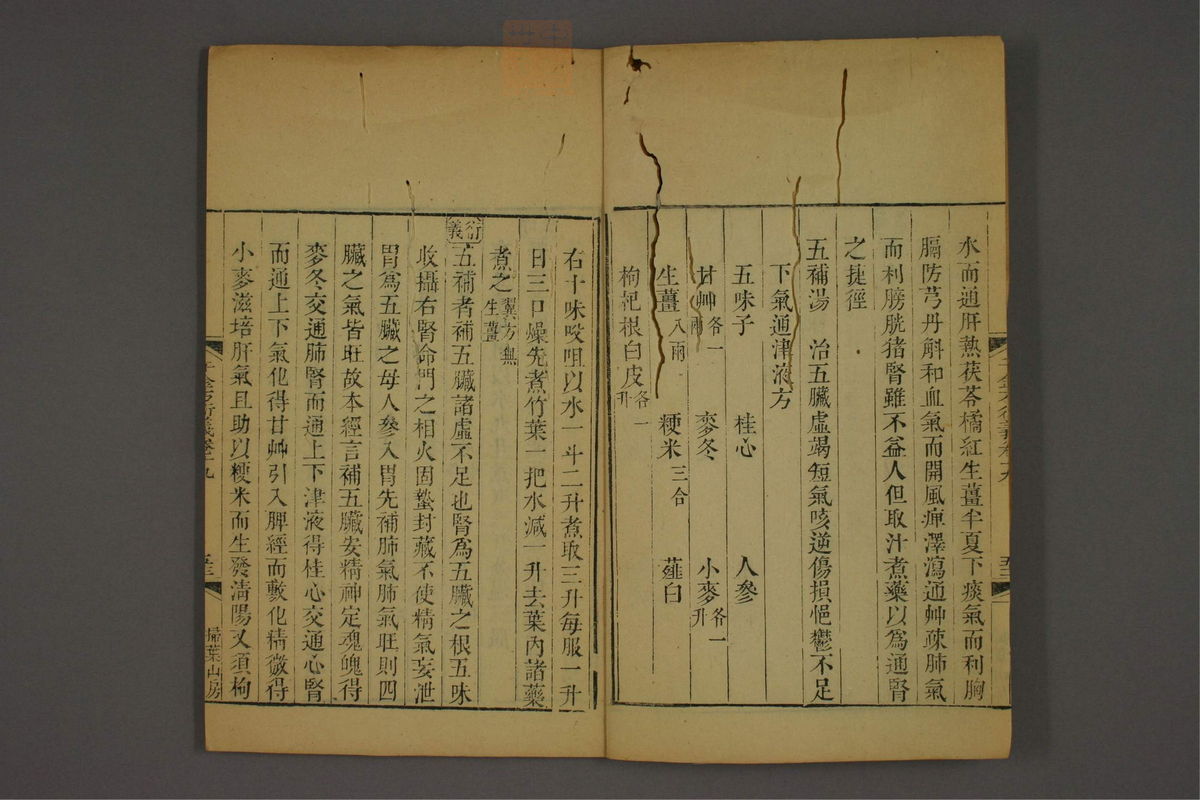 水而通肝熱茯苓橘紅生薑半夏下痰氣而利胸
膈防芎丹斛和血氣而開風痺澤瀉通艸疎肺氣
而利膀胱猪腎雖不益人但取汁煮藥以爲通腎
之捷徑
五補湯 治五臟虛竭短氣咳逆傷損悒鬱不足
下氣通津液方
五味子 桂心 人參
甘艸各一兩 麥冬 小麥各一升
生薑八兩 粳米三合 薤白
枸𣏌根白皮各一升
右十味㕮咀以水一斗二升煮取三升每服一升
日三口燥先煮竹葉一把水減一升去葉內諸藥
煮之翼方無生薑
衍義
五補者補五臟諸虛不足也腎爲五臟之根五味
收攝右腎命門之相火固蟄封藏不使精氣妄泄
胃爲五臟之母人參入胃先補肺氣肺氣旺則四
臟之氣皆旺故本經言補五臟安精神定魂魄得
麥冬交通肺腎而通上下津液得桂心交通心腎
而通上下氣化得甘艸引入脾經而敷化精微得
小麥滋培肝氣且助以粳米而生發清陽又須枸
千金方衍義卷十九
掃葉山房